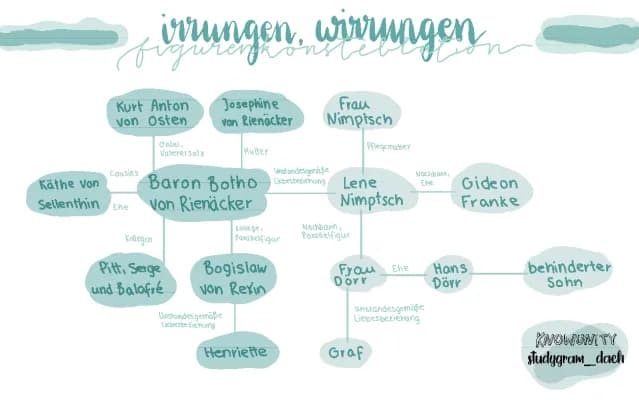 irrungen, wirrungen
figurenkonstellation
Kurt Anton
von Osten
Josephine
von Rienäcker
Frau
Nimptsch
Onkel,
Vaterersatz
Mutter
Pflegemutter
Cousins
Käthe von
Sellenthin
Ehe
Baron Botho
von Rienäcker
Unstandesgemäße
Liebesbeziehung
Lene
Nimptsch
Nachbarn,
Ehe
Gideon
Franke
Kollegen
Kollege,
Parallelfigur
Nachbarn,
Parallelfigur
Pitt, Serge
und Balafré
Bogislaw
von Rexin
Frau
Dörr
Ehe
Hans
Dörr
behinderter
Sohn
Unstandesgemäße
Liebesbeziehung
Unstandesgemäße
Liebesbeziehung
Henriette
Graf
KNOWUNITY
studygram_daeh